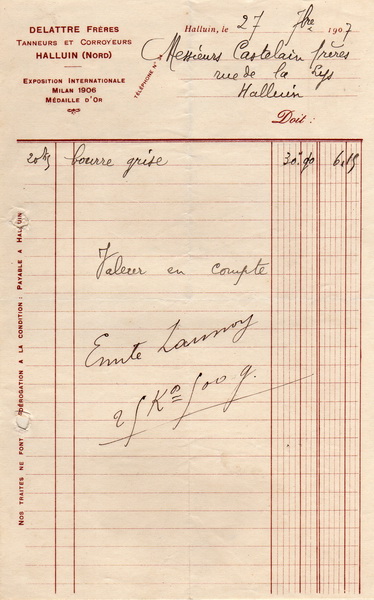 DELATTRE FRÈRES
TANNEURS ET CORROYEURS
HALLUIN (NORD)
EXPOSITION INTERNATIONALE
MILAN 1906
MÉDAILLE D'OR
TÉLÉPHONE N°
Halluin, le 27 7bre 1907
Messieurs Castelain frères
rue de la Lys
Halluin
Doit :
bourre grise 30
Valeur en compte
Emile Launoy
25 K° 500 g.
NOS TRAITES NE FONT DÉROGATION A LA CONDITION : PAYABLE A HALLUIN